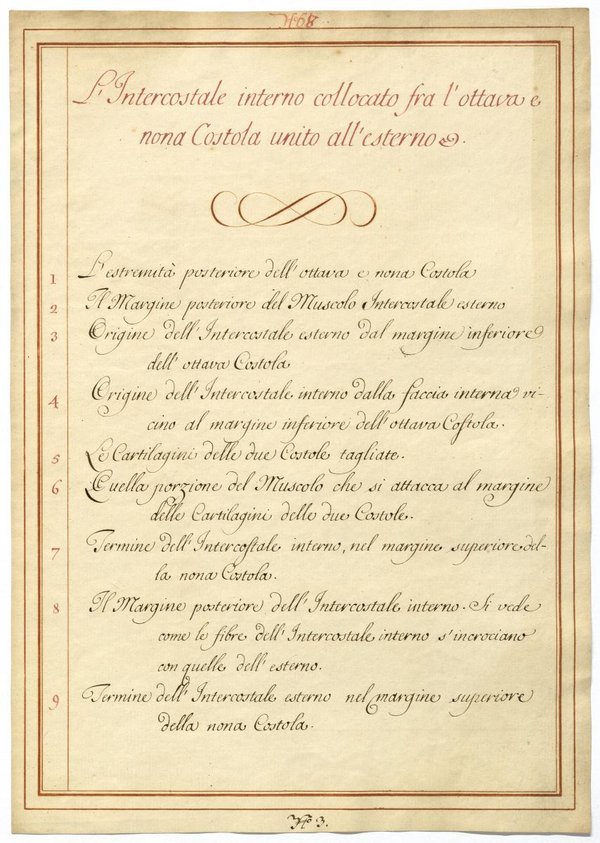 No 68
L'Intercostale interno collocato fra l'ottava e
nona Costola unito all'esterno.
1 L'estremità posteriore dell'ottava e nona Costola
2 Il Margine posteriore del Muscolo Intercostale esterno
3 Origine dell'Intercostale esterno dal margine inferiore
dell'ottava Costola
4 Origine dell'Intercostale interno dalla faccia interna vi-
cino al margine inferiore dell'ottava Costola.
5 Le Cartilagini delle due Costole tagliate.
6 Quella porzione del Muscolo che si attacca al margine
delle Cartilagini delle due Costole.
7 Termine dell'Intercostale interno, nel margine superiore del-
la nona Costola.
8 Il Margine posteriore dell'Intercostale interno. Si vede
come le fibre dell'Intercostale interno s'incrociano
con quelle dell'esterno.
9 Termine dell'Intercostale esterno nel margine superiore
della nona Costola.
No 3.